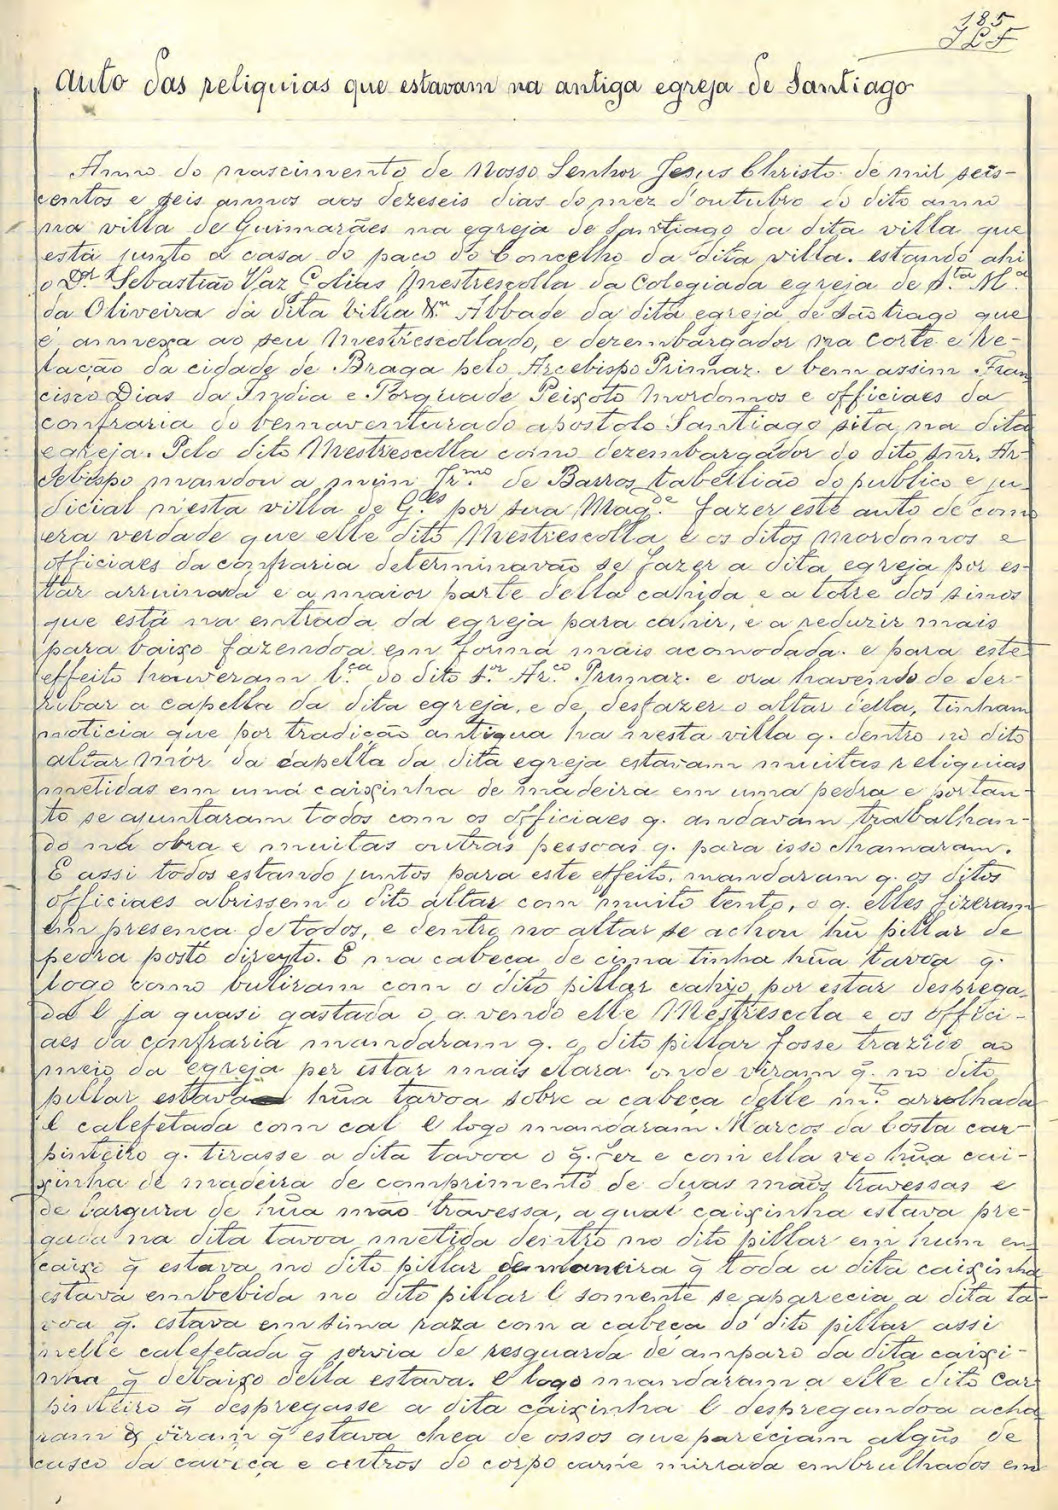 185
JLF
Auto das reliquias que estavam na antiga egreja de Santiago
Anno do nascimento de Nosso Senhor Jesus Christo de mil seis-
centos e seis annos aos dezeseis dias do mez d'outubro do dito anno
na villa de Guimarães na egreja de Santiago da dita villa que
está junto á casa do paço do Concelho da dita villa. estando ahi
o D.or Sebastião Vaz Golias Mestrescolla da Colegiada egreja de S.ta M.a
da Oliveira da dita villa Abbade da dita egreja de São tiago que
é annexa ao seu Mestrescollado, e dezembargador na corte e Re-
lação da cidade de Braga pelo Arcebispo Primaz. e bem assim Fran-
cisco Dias da India e Torquade Peixoto Mordomos e officiaes da
confraria do bemaventurado apostolo Santiago sita na dita
egreja. Pelo dito Mestrescolla como dezembargador do dito Snr. Ar-
cebispo mandou a mim Jr.mo de Barros tabellião do publico e ju-
dicial n'esta villa de G.es por sua Mag.de fazer este auto de como
era verdade que elle dito Mestrescolla e os ditos mordomos e
officiaes da confraria determinavão se fazer a dita egreja por es-
tar arruinada e a maior parte della cahida e a torre dos sinos
que está na entrada da egreja para cahir, e a reduzir mais
para baixo fazendoa em forma mais acomodada. e para este
effeito houveram l.ça do dito S.or Ar.co Primaz. e ora havendo de der-
ribar a capella da dita egreja, e de desfazer o altar della, tinham
noticia que por tradição antigua ha nesta villa q. dentro no dito
altar mór da capella da dita egreja estavam muitas reliquias
metidas em uma caixinha de madeira em uma pedra e portan-
to se ajuntaram todos com os officiaes q. andavam trabalhan-
do na obra e muitas outras pessoas q. para isso chamaram.
E assi todos estando juntos para este effeito, mandaram q. os ditos
officiaes abrissem o dito altar com muito tento, o q. elles fizeram
em presença de todos, e dentro no altar se achou hũ pillar de
pedra posto direyto. E na cabeça de cima tinha hũa tavoa q̃
logo como buliram com o dito pillar cahyo por estar desprega-
da e ja quasi gastada o q. vendo elle Mestrescola e os offici-
aes da confraria mandaram q. o dito pillar fosse trazido ao
meio da egreja per estar mais clara onde viram q̃ no dito
pillar estava hũa tavoa sobre a cabeça delle m.to arrolhada
e calefetada com cal e logo mandaram Marcos da Costa car-
pinteiro q. tirasse a dita tavoa o q̃ fez e com ella veo hũa cai-
xinha de madeira de comprimento de duas mãos travessas e
de largura de hũa mão travessa, a qual caixinha estava pre-
gada na dita tavoa metida dentro no dito pillar em hum en-
caixo q̃ estava no dito pillar de maneira q̃ toda a dita caixinha
estava embebida no dito pillar e somente se aparecia a dita ta-
voa q̃ estava em sima raza com a cabeça do dito pillar assi
nelle calefetada q̃ servia de resguarda de amparo da dita caixi-
nha q̃ debaixo della estava. E logo mandaram a elle dito car-
pinteiro q̃ despregasse a dita caixinha e despregandoa acha-
ram & viram q̃ estava chea de ossos que pareciam algũs de
casco da caveça e outros do corpo carne mirrada embrulhados em